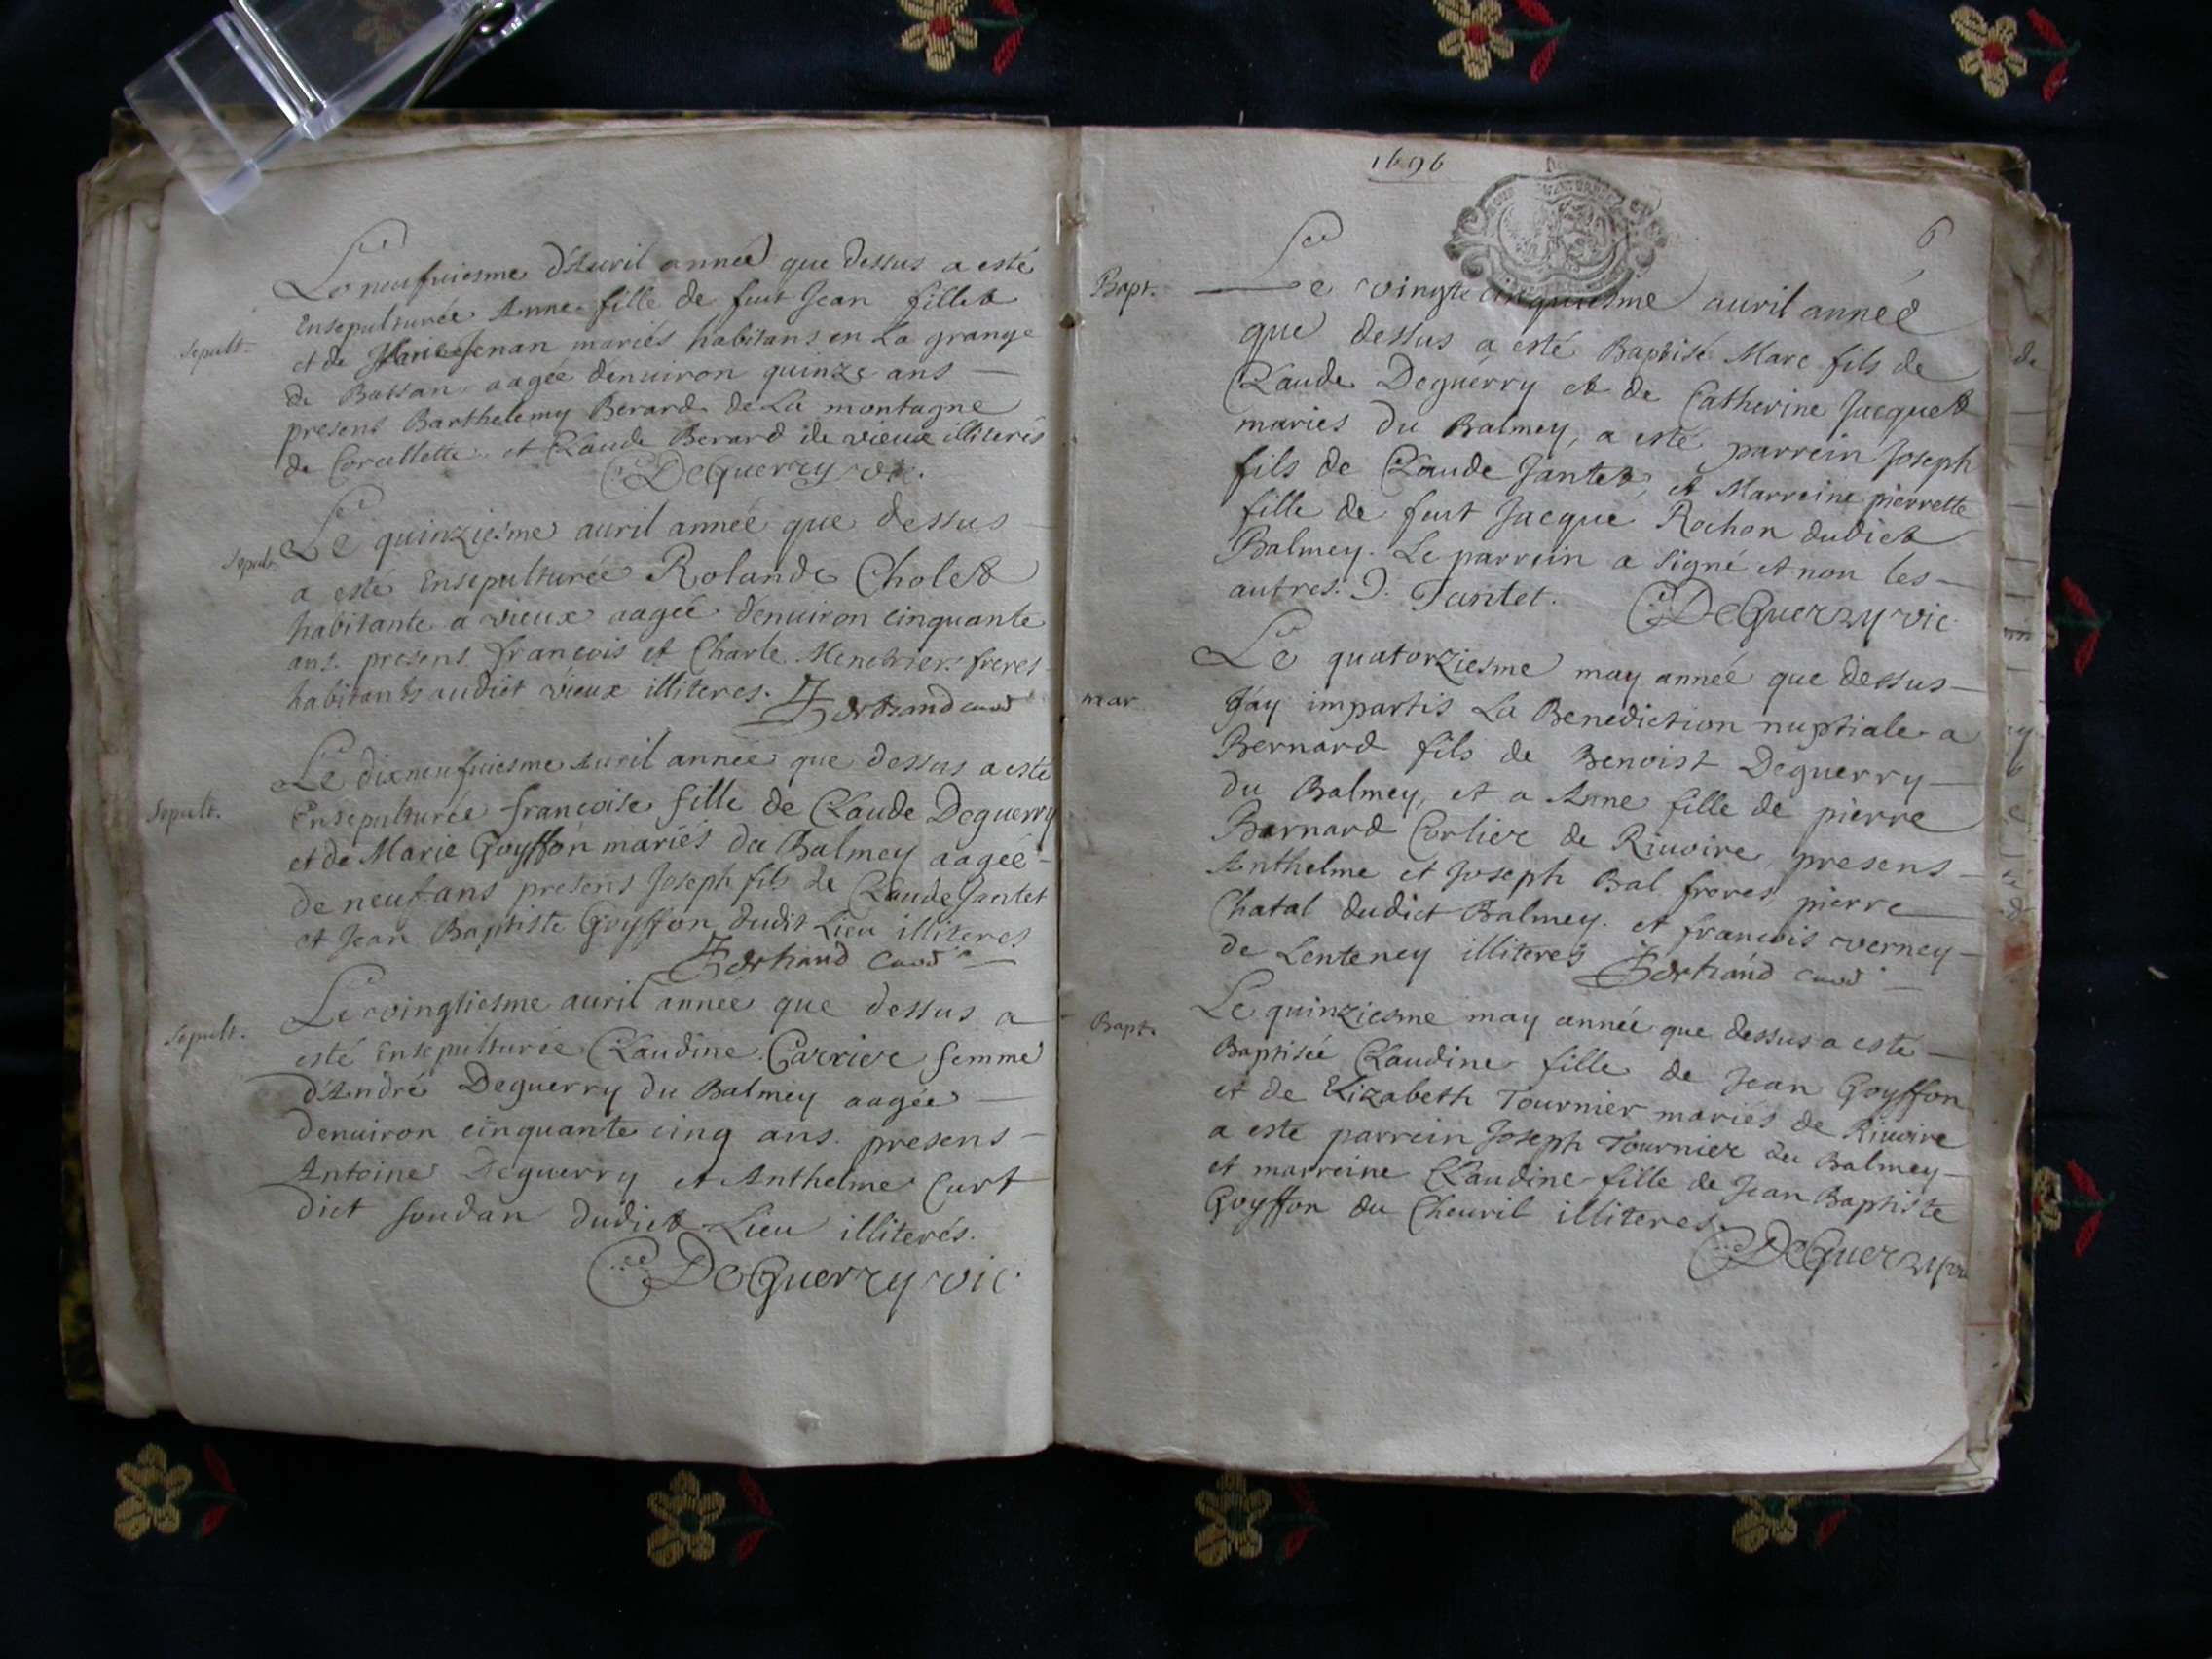 Le neufuiesme d'Auril année que dessus a esté
sepult.
Ensepulturée Anne fille de feut Jean fillet
et de Marie Jenan mariés habitans en La grange
de Bassan aagée denuiron quinze ans
presens Barthelemy Berard de La montagne
de Corcellette et Claude Berard de vieux illiterés
DeGuerry vic.
Sepult.
Le quinziesme auril année que dessus
a esté Ensepulturée Rolande Cholet
habitante a vieux aagée denuiron cinquante
ans. presens francois et Charle Menetrier freres
habitants audict vieux illiteres.
Le dixneufuiesme Auril année que dessus a esté
Sepult.
Ensepulturée francoise fille de Claude Deguerry
et de Marie Goyffon mariés du Balmey aagée
de neuf ans presens Joseph fils de Claude Jantet
et Jean Baptiste Goyffon dudit Lieu illiteres
Sepult.
Le vingtiesme auril année que dessus a
esté Ensepulturée Claudine Carrier femme
d'André Deguerry du Balmey aagée
denuiron cinquante cinq ans. presens
Antoine Deguerry et Anthelme Curt
dict soudan dudict Lieu illiterés.
DeGuerry vic.
1696
6
Bapt.
Le vingte cinquiesme auril année
que dessus a esté Baptisé Marc fils de
Claude Deguerry et de Catherine Jacquet
mariés du Balmey, a esté parrein Joseph
fils de Claude Jantet, et Marreine pierrette
fille de feut Jacque Rochon dudict
Balmey. Le parrein a signé et non les
autres. J. Jantet. DeGuerry vic.
mar
Le quatorziesme may année que dessus
J'ay impartis La Benediction nuptiale a
Bernard fils de Benoist Deguerry
du Balmey, et a Anne fille de pierre
Barnard Corlier de Riuoire, presens
Anthelme et Joseph Bal freres, pierre
Chatal dudict Balmey. et francois verney
de Lenteney illiteres
Bapt.
Le quinziesme may année que dessus a esté
Baptisée Claudine fille de Jean Goyffon
et de Elizabeth Tournier mariés de Riuoire
a esté parrein Joseph Tournier du Balmey
et marreine Claudine fille de Jean Baptiste
Goyffon du Cheuril illiteres.
DeGuerry